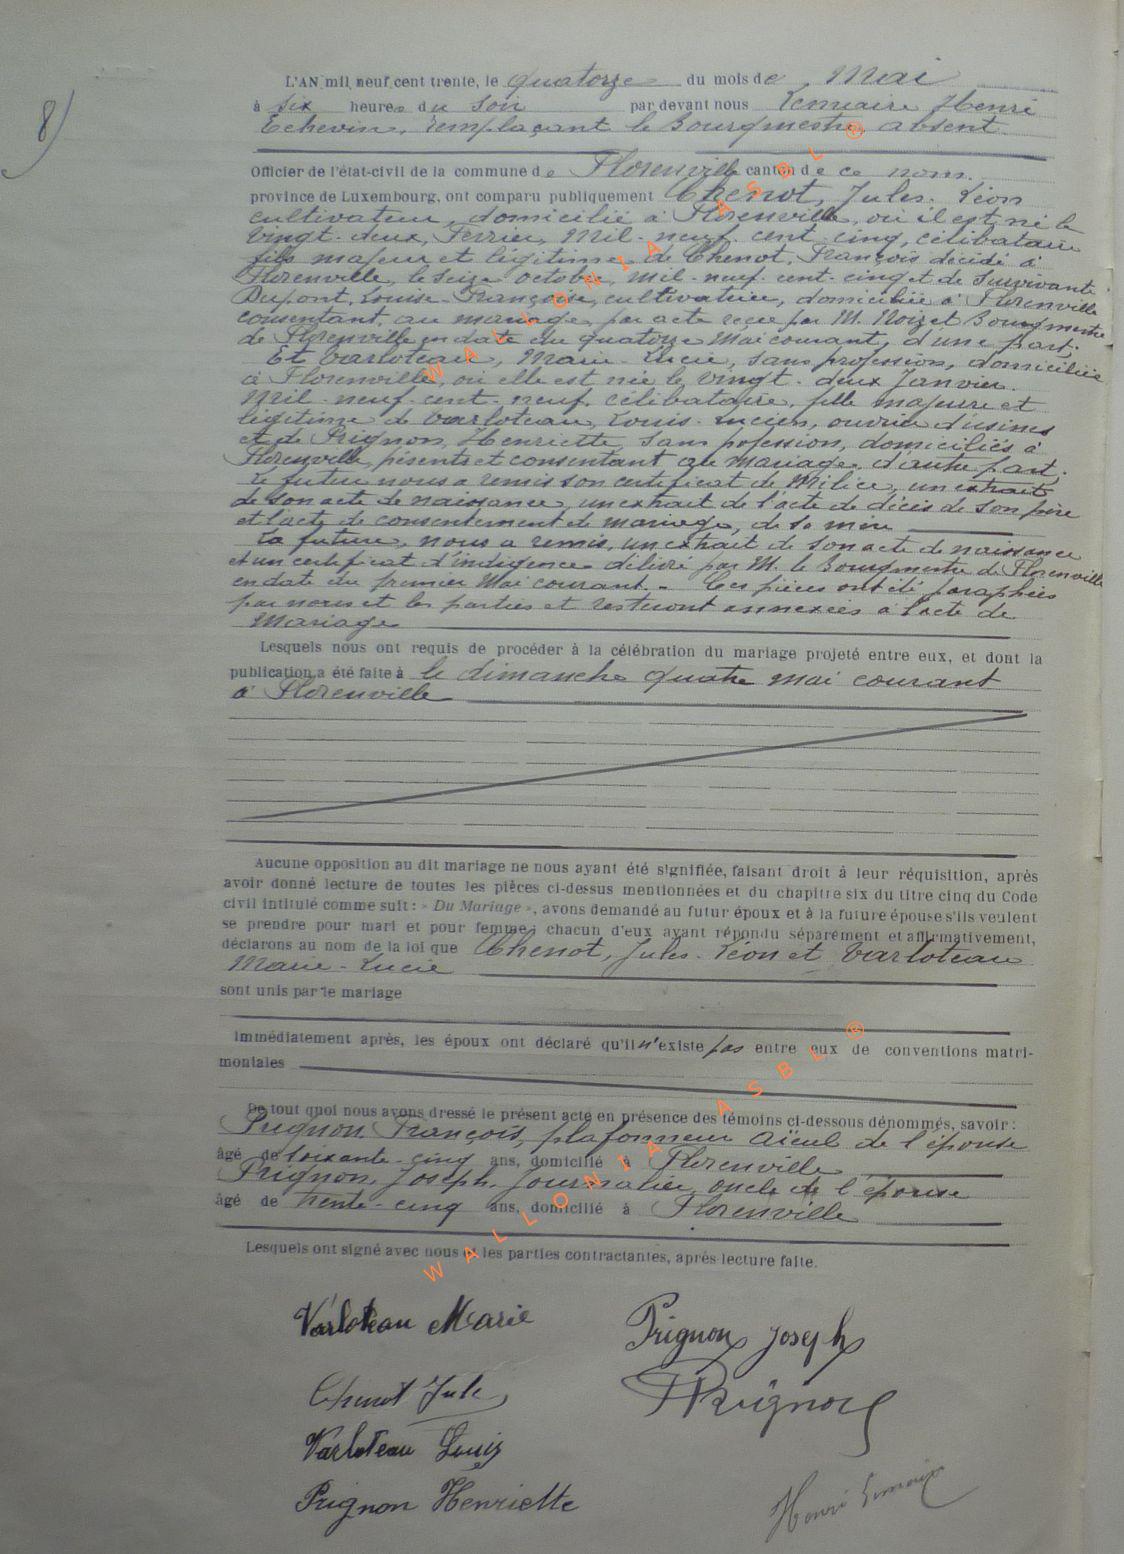 8)
L'AN mil neuf cent trente, le quatorze du mois de Mai
à six heures du soir par devant nous Lemaire Henri
Echevin, remplaçant le Bourgmestre, absent
Officier de l'état-civil de la commune de Florenville canton de ce nom.
province de Luxembourg, ont comparu publiquement Chenot, Jules-Léon
cultivateur, domicilié à Florenville, où il est né le
vingt-deux, Février, Mil-neuf-cent-cinq, célibataire
fils majeur et légitime de Chenot, François décédé à
Florenville, le seize octobre mil-neuf-cent-cinq et de survivante
Dupont, Louise-Françoise, cultivatrice, domiciliée à Florenville
consentant au mariage, par acte reçu par M. Noizet Bourgmestre
de Florenville en date du quatorze Mai courant, d'une part;
Et Varloteau, Marie-Lucie, sans profession, domiciliée
à Florenville, où elle est née le vingt-deux Janvier
Mil-neuf-cent-neuf, célibataire, fille majeure et
légitime de Varloteau, Louis-Lucien, ouvrier d'usines
et de Prignon, Henriette, sans profession, domiciliés à
Florenville, présents et consentant au mariage, d'autre part.
Le futur nous a remis son certificat de Milice, un extrait
de son acte de naissance, un extrait de l'acte de décès de son père
et l'acte de consentement de mariage, de sa mère
La future, nous a remis, un extrait de son acte de naissance
et un certificat d'indigence délivré par M. le Bourgmestre de Florenville
en date du premier Mai courant. - Ces pièces ont été paraphées
par nous et les parties et resteront annexées à l'acte de
Mariage
Lesquels nous ont requis de procéder à la célébration du mariage projeté entre eux, et dont la
publication a été faite à le dimanche quatre mai courant
à Florenville
Aucune opposition au dit mariage ne nous ayant été signifiée, faisant droit à leur réquisition, après
avoir donné lecture de toutes les pièces ci-dessus mentionnées et du chapitre six du titre cinq du Code
civil intitulé comme suit : « Du Mariage », avons demandé au futur époux et à la future épouse s'ils veulent
se prendre pour mari et pour femme; chacun d'eux ayant répondu séparément et affirmativement,
déclarons au nom de la loi que Chenot, Jules-Léon et Varloteau
Marie-Lucie
sont unis par le mariage
Immédiatement après, les époux ont déclaré qu'il n'existe pas entre eux de conventions matri-
moniales
De tout quoi nous avons dressé le présent acte en présence des témoins ci-dessous dénommés, savoir :
Prignon François, plafonneur aïeul de l'épouse
âgé de soixante-cinq ans, domicilié à Florenville
Prignon, Joseph, Journalier, oncle de l'épouse
âgé de trente-cinq ans, domicilié à Florenville
Lesquels ont signé avec nous et les parties contractantes, après lecture faite.
Varloteau Marie
Prignon Joseph
Chenot Jules
F Prignon
Varloteau Louis
Prignon Henriette
Henri Lemaire
WALLONIA ASBL ®
WALLONIA ASBL ®